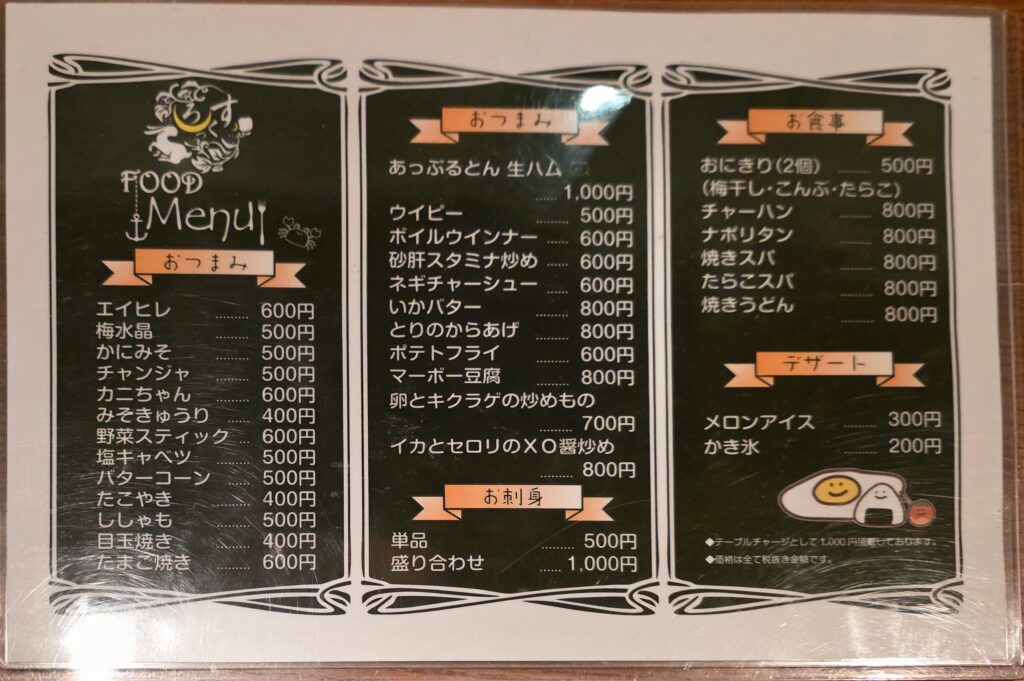 FOOD
Menu
おつまみ
エイヒレ ........ 600円
梅水晶 ........ 500円
かにみそ ........ 500円
チャンジャ ........ 500円
カニちゃん ........ 600円
みそきゅうり ...... 400円
野菜スティック ... 600円
塩キャベツ ....... 500円
バターコーン ..... 500円
たこやき ........ 400円
ししゃも ........ 500円
目玉焼き ........ 400円
たまご焼き ....... 600円
おつまみ
あっぷるとん 生ハム
..... 1,000円
ウイピー ........ 500円
ボイルウインナー ..... 600円
砂肝スタミナ炒め ..... 600円
ネギチャーシュー ..... 600円
いかバター ........ 800円
とりのからあげ ...... 800円
ポテトフライ ........ 600円
マーボー豆腐 ........ 800円
卵とキクラゲの炒めもの
........ 700円
イカとセロリのXO醤炒め
........ 800円
お刺身
単品 ........ 500円
盛り合わせ ..... 1,000円
お食事
おにぎり(2個) ...... 500円
(梅干し・こんぶ・たらこ)
チャーハン ........ 800円
ナポリタン ........ 800円
焼きスパ ........ 800円
たらこスパ ........ 800円
焼きうどん ........ 800円
デザート
メロンアイス ...... 300円
かき氷 ........ 200円
◆テーブルチャージとして1,000円頂戴しております。
◆価格は全て税抜き金額です。